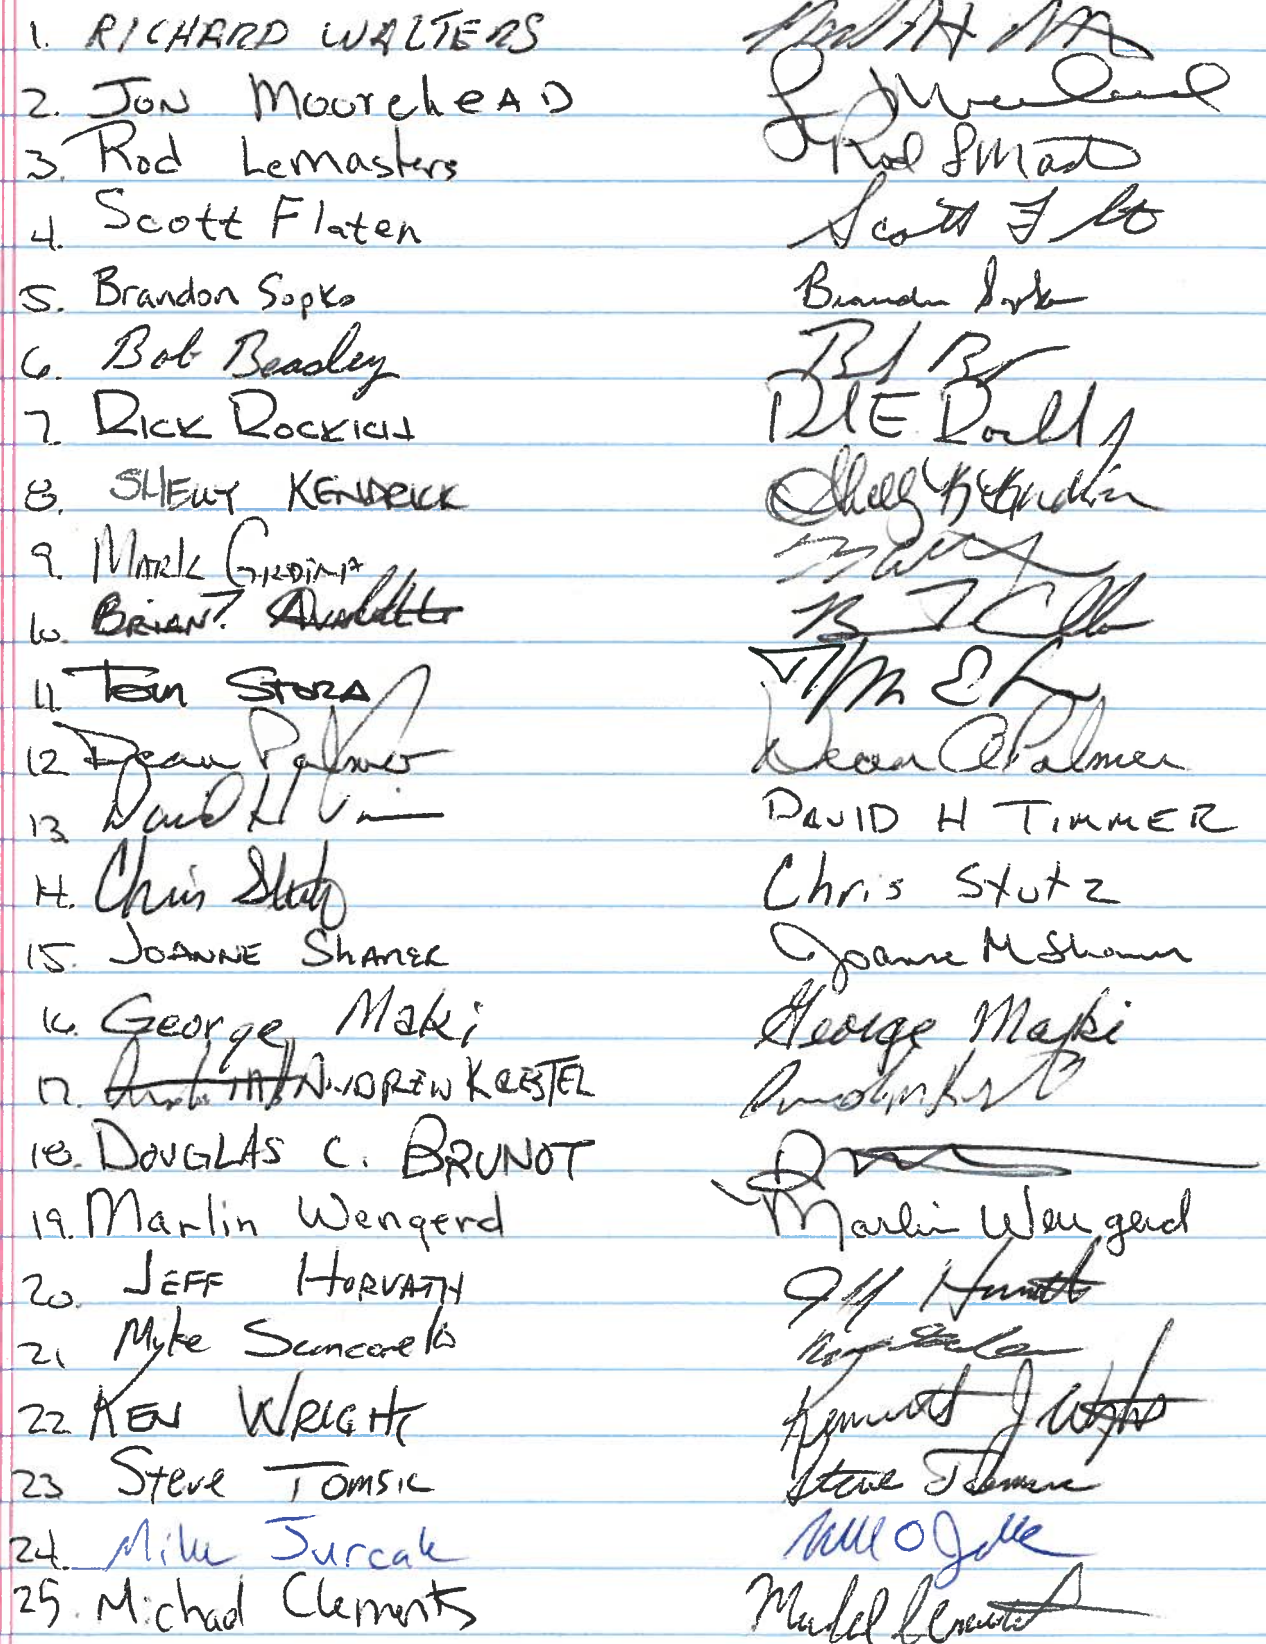 1. RICHARD WALTERS
2. Jon MooreheAD
3. Rod LeMasters Rod
4. Scott Flaten Scott
5. Brandon Sopko Brandon Sopko
6. Bob Beasley
7. RICK ROCKICH
8. SHELLY KENDRICK Shelly
9. MARK GRDINA
10. BRIAN T.
11. Tom STORA
12 Dean Palmer Dean C Palmer
13. David H DAVID H TIMMER
14. Chris Stutz Chris Stutz
15. JOANNE SHAMER Joanne M Shamer
16. George Maki George Maki
17. ANDREW KRESTEL
18. DOUGLAS C. BRUNOT
19. Marlin Wengerd Marlin Wengerd
20. JEFF HORVATH Jeff Horvath
21 Myke
22 KEN WRIGHT Kenneth J Wright
23 Steve TOMSIC Steve
24. Mike Jurcak
25. Michael Clements Michael Clements